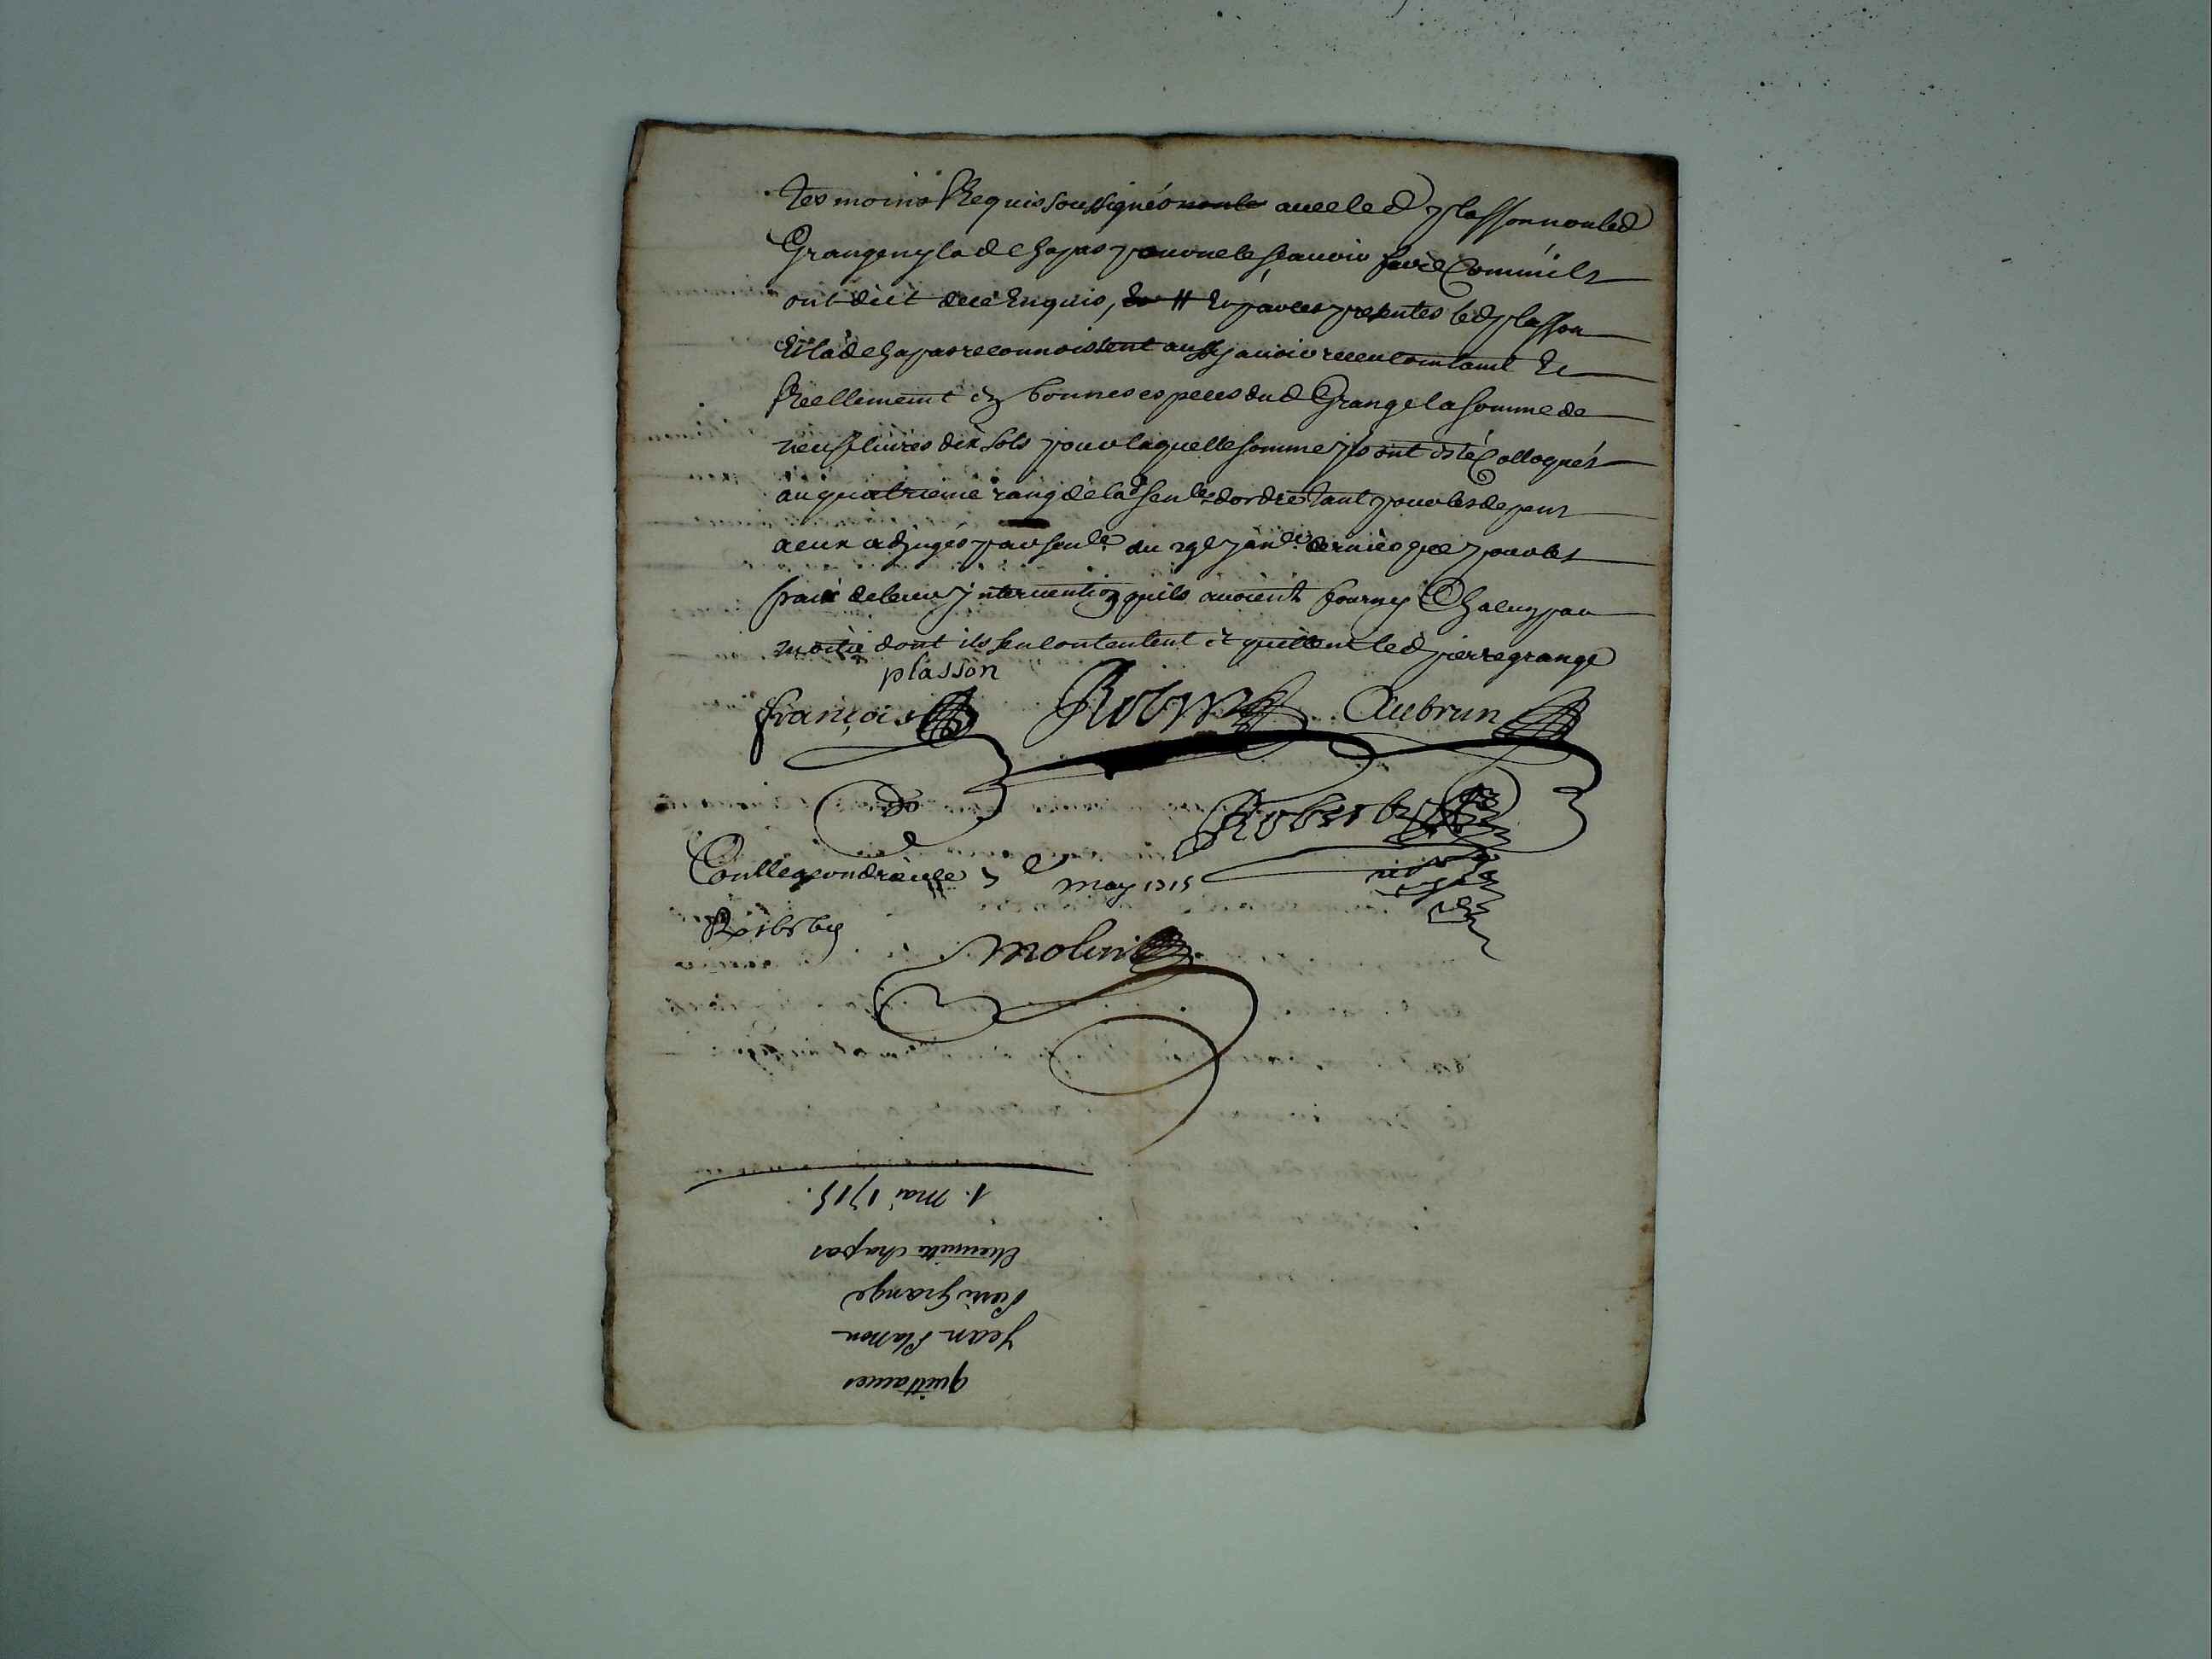 tesmoins Requis soussignés avec led plasson non led
Grange ny lad Chapas pour ne le sçavoir faire Comm'ils
ont dict de ce Enquis, Et par ces presentes led plasson
Et lad Chapas reconnoissent aussy avoir receu contant Et
Reellement en bonnes especes dud Grange la somme de
neuf livres dix sols pour laquelle somme ils ont esté Colloqués
au quatrieme rang de lad sen.ce dordre tant pour les depens
a eux adjugés par sen.ce du 29e janr dernier que pour les
frais de leur intervention quils avoient fourny Chacun par
moitié dont ils se contentent et quittent led pierre grange
plasson
françois Robin Aubrun
Robert
Conlle a may 1715
Molin
1. Mai 1715.
chapas
Pierre Grange
Jean Plasson
quittances